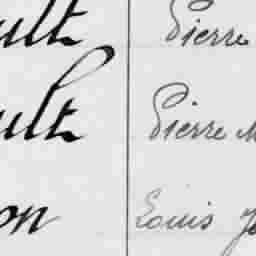 ult Pierre
ult Pierre M
on Louis J